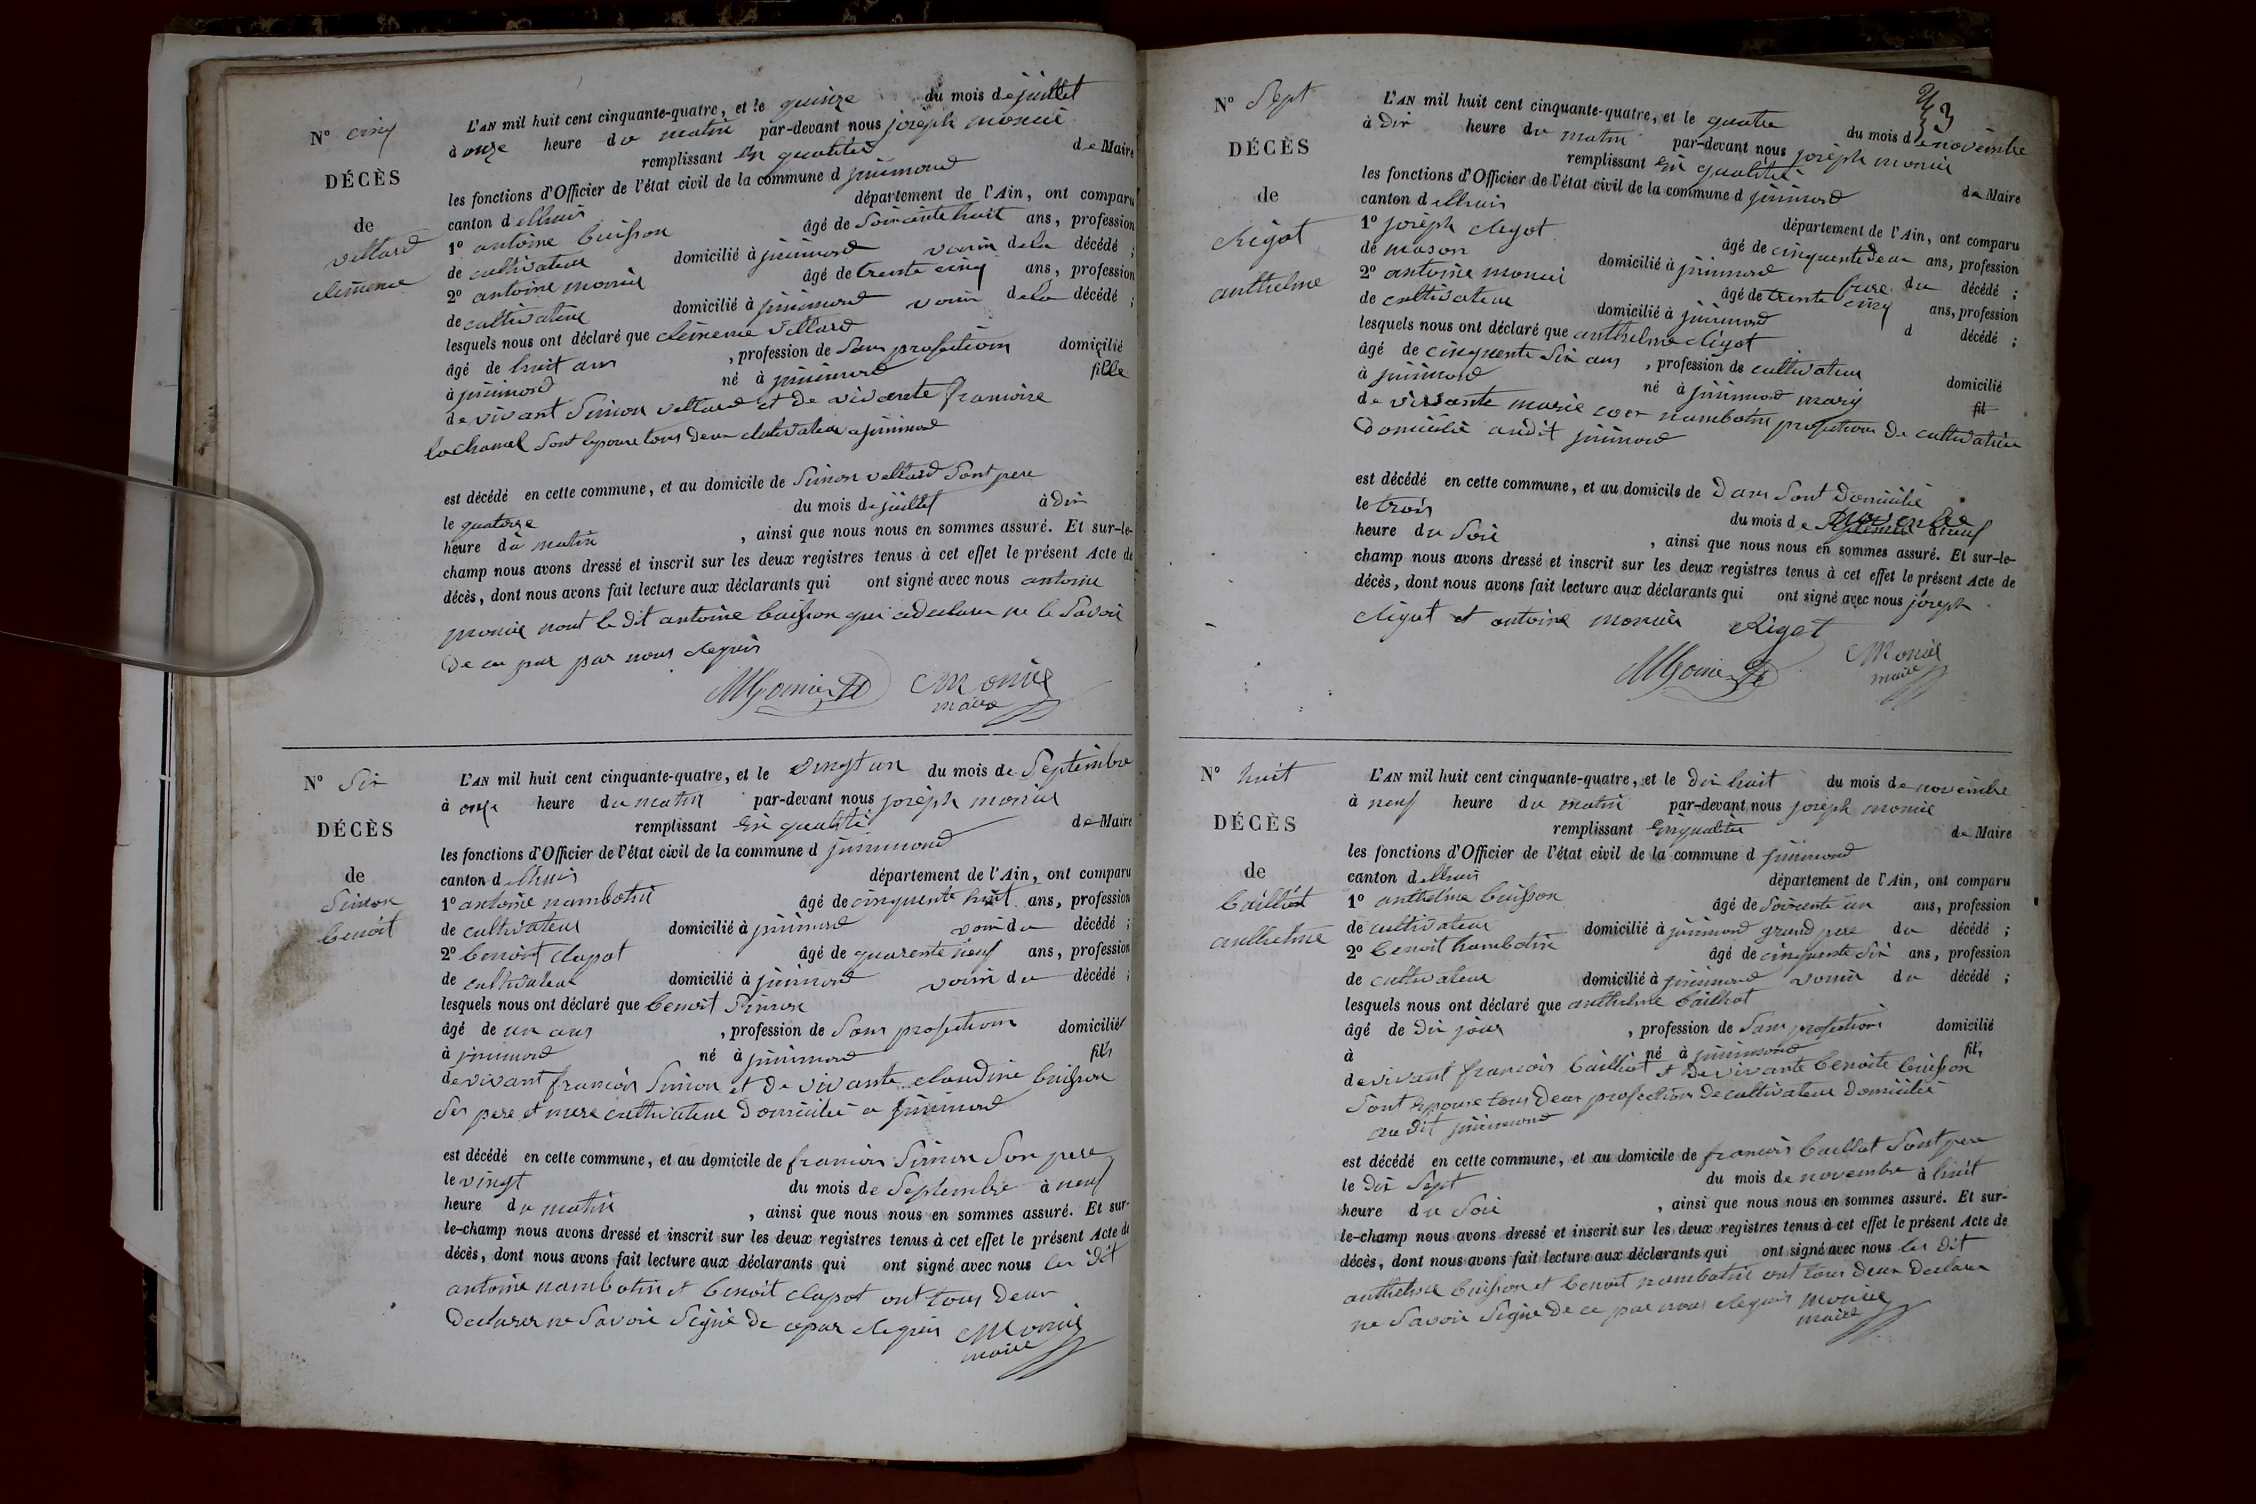 N° cinq
DÉCÈS
de
vettard
clémence
L'AN mil huit cent cinquante-quatre, et le quinze du mois de juillet
à onze heure du matin par-devant nous joseph monier
remplissant en qualité de Maire
les fonctions d'Officier de l'état civil de la commune d jinimond
canton d lhuis département de l'Ain, ont comparu
1° antoine buisson âgé de Soixante huit ans, profession
de cultivateur domicilié à jinimond voisin de la décédé ;
2° antoine monier âgé de trente cinq ans, profession
de cultivateur domicilié à jinimond voisin de la décédé ;
lesquels nous ont déclaré que clémence vettard
âgé de huit ans , profession de Sans profection domicilié
à jinimond né à jinimond fille
de vivant Simon vettard et de vivante francoise
Sont epoux tous deux cultivateur a jinimond
est décédé en cette commune, et au domicile de Simon vettard Sont pere
le quatorze du mois de juillet à Dix
heure du matin , ainsi que nous nous en sommes assuré. Et sur-le-
champ nous avons dressé et inscrit sur les deux registres tenus à cet effet le présent Acte de
décès, dont nous avons fait lecture aux déclarants qui ont signé avec nous antoine
monier nont le dit antoine buisson qui a declarer ne le Savoir
De ce par par nous requis
Monier
maire
N° Six
DÉCÈS
de
Simon
benoit
L'AN mil huit cent cinquante-quatre, et le vingt un du mois de Septembre
à onze heure du matin par-devant nous joseph monier
remplissant en qualité de Maire
les fonctions d'Officier de l'état civil de la commune d jinimond
canton d lhuis département de l'Ain, ont comparu
1° antoine nambotin âgé de cinquente huit ans, profession
de cultivateur domicilié à jinimond voisin du décédé ;
2° benoit clapot âgé de quarente neuf ans, profession
de cultivateur domicilié à jinimond voisin du décédé ;
lesquels nous ont déclaré que benoit Simon
âgé de un ans , profession de Sans profection domicilié
à jinimond né à jinimond fils
de vivant francois Simon et de vivante claudine buisson
Ses pere et mere cultivateur Domicilié a jinimond
est décédé en cette commune, et au domicile de francois Simon Son pere
le vingt du mois de Septembre à neuf
heure du matin , ainsi que nous nous en sommes assuré. Et sur-
le-champ nous avons dressé et inscrit sur les deux registres tenus à cet effet le présent Acte de
décès, dont nous avons fait lecture aux déclarants qui ont signé avec nous les dit
antoine nambotin et benoit clapot ont tous deux
Declarer ne Savoir Signé De ce par requis Monier
maire
N° Sept
DÉCÈS
de
Rigot
anthelme
L'AN mil huit cent cinquante-quatre, et le quatre du mois de novembre
à Dix heure du matin par-devant nous joseph monier
remplissant en qualité de Maire
les fonctions d'Officier de l'état civil de la commune d jinimond
canton d lhuis département de l'Ain, ont comparu
1° joseph Rigot âgé de cinquente deux ans, profession
de mason domicilié à jinimond frere du décédé ;
2° antoine monier âgé de trente cinq ans, profession
de cultivateur domicilié à jinimond d décédé ;
lesquels nous ont déclaré que anthelme Rigot
âgé de cinquente Six ans , profession de cultivateur domicilié
à jinimond né à jinimond mary fil
de vivante marie nambotin profection De cultivatrice
Domicilié audit jinimond
est décédé en cette commune, et au domicile de Dans Sont Domicilié
le trois du mois de novembre à neuf
heure du Soir , ainsi que nous nous en sommes assuré. Et sur-le-
champ nous avons dressé et inscrit sur les deux registres tenus à cet effet le présent Acte de
décès, dont nous avons fait lecture aux déclarants qui ont signé avec nous joseph
Rigot et antoine monier Rigot
Monier Monier
maire
N° huit
DÉCÈS
de
bailliot
anthelme
L'AN mil huit cent cinquante-quatre, et le Dix huit du mois de novembre
à neuf heure du matin par-devant nous joseph monier
remplissant en qualité de Maire
les fonctions d'Officier de l'état civil de la commune d jinimond
canton d lhuis département de l'Ain, ont comparu
1° anthelme buisson âgé de Soixente un ans, profession
de cultivateur domicilié à jinimond grand pere du décédé ;
2° benoit nambotin âgé de cinquente Six ans, profession
de cultivateur domicilié à jinimond voisin du décédé ;
lesquels nous ont déclaré que anthelme bailliot
âgé de Dix jours , profession de Sans profection domicilié
à né à jinimond fils
de vivant francois bailliot et De vivante benoite buisson
Sont epoux tous Deux profection De cultivateur Domicilié
au dit jinimond
est décédé en cette commune, et au domicile de francois baillot Sont pere
le Dix Sept du mois de novembre à huit
heure du Soir , ainsi que nous nous en sommes assuré. Et sur-
le-champ nous avons dressé et inscrit sur les deux registres tenus à cet effet le présent Acte de
décès, dont nous avons fait lecture aux déclarants qui ont signé avec nous les dit
anthelme buisson et benoit nambotin ont tous deux Declarer
ne Savoir Signé De ce par nous requis Monier
maire